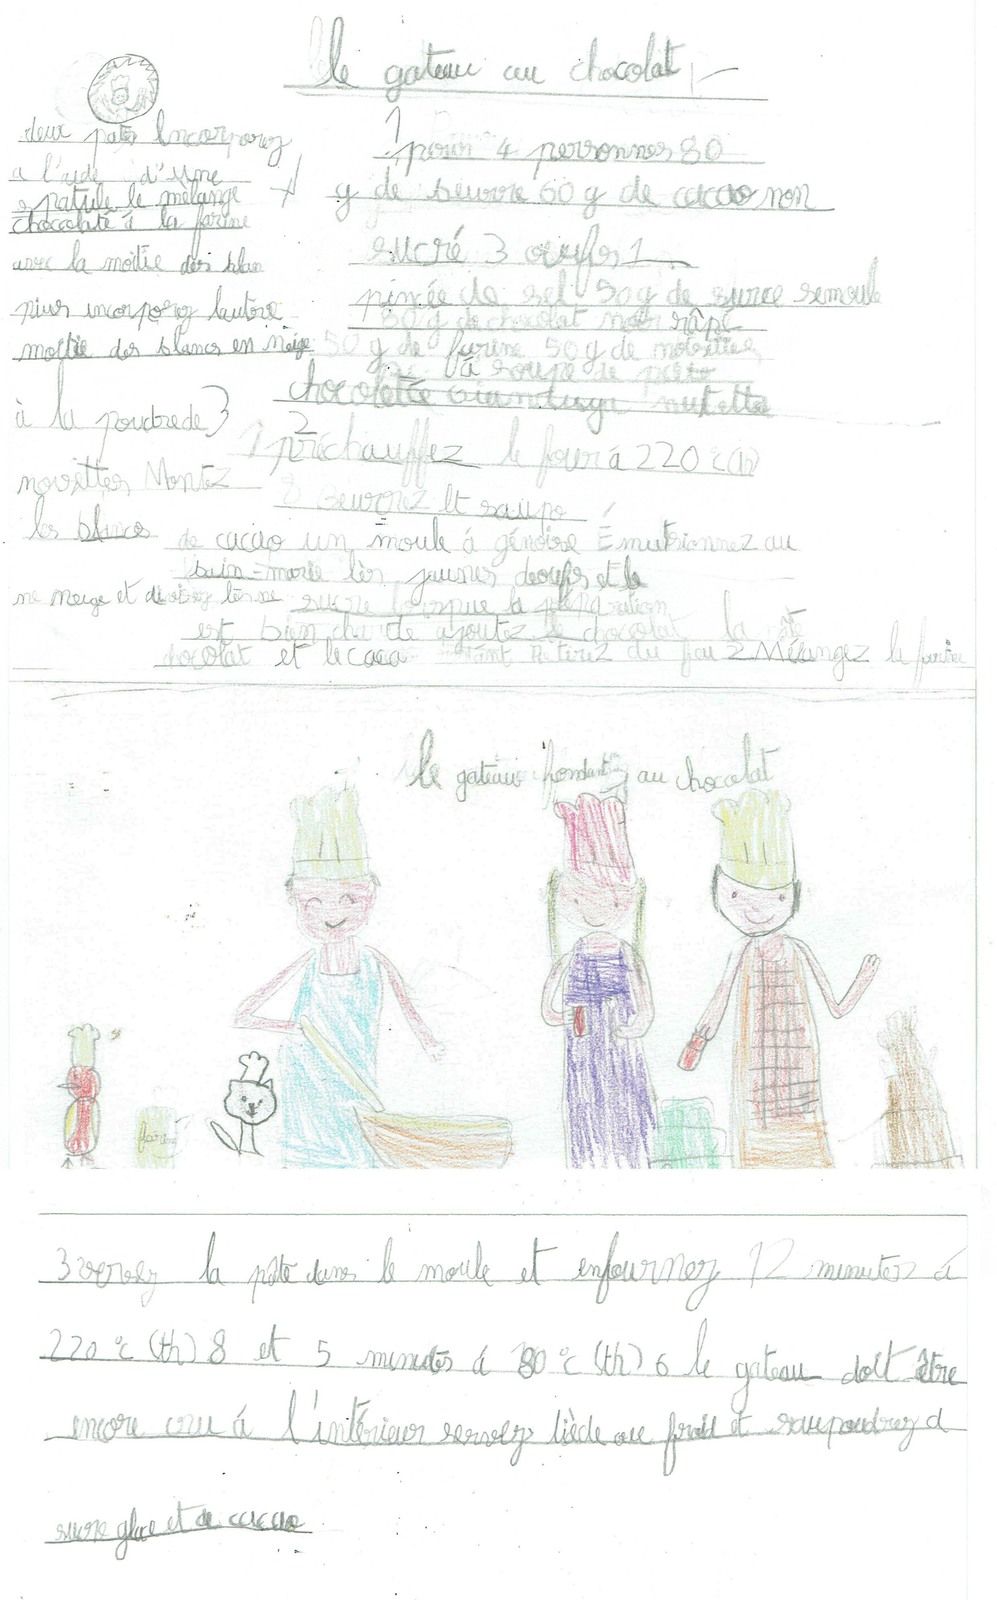 le gateau au chocolat
1
pour 4 personnes 80
g de beurre 60 g de cacao non
sucré 3 oeufs 1
pincée de sel 50 g de sucre semoule
50 g de chocolat noir râpé
50 g de farine 50 g de noisettes
à soupe de pate
chocolatée gianduga nutella
2
1 préchauffez le four à 220 °c (th)
8 beurrez et saupo
de cacao un moule à génoise Émulsionnez au
bain-marie les jaunes deoufs et le
sucre lorsque la préparation
est bien chaude ajoutez le chocolat la
chocolat et le cacao Retirez du feu 2 Mélangez la farine
à la poudrede 3
noisettes Montez
les blancs
ne neige et divisez les
deux pates Incorporez
a l'aide d'une
spatule le mélange
chocolaté à la farine
avec la moitie des blan
puis incorporez lautre
moitie des blancs en neige
le gateau fondant au chocolat
farine
3 versez la pâte dans le moule et enfournez 12 minutes à
220 °c (th) 8 et 5 minutes à 180 °c (th) 6 le gateau doit être
encore cru à l'intérieur servez tiède ou froid et saupoudrez d
sucre glace et de cacao